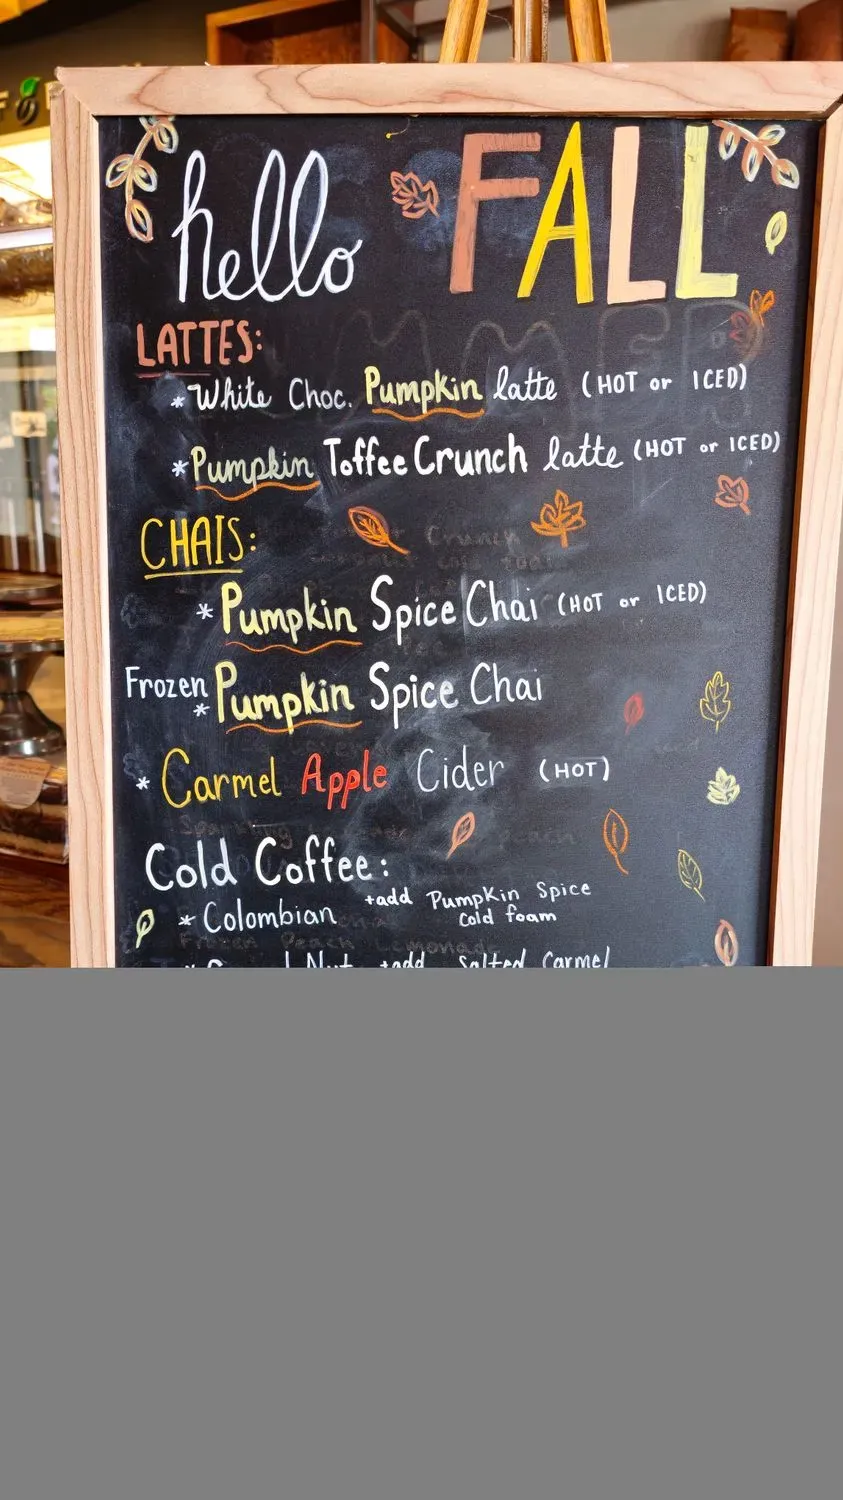 hello FALL
LATTES:
*White Choc. Pumpkin latte (HOT or ICED)
*Pumpkin Toffee Crunch latte (HOT or ICED)
CHAIS:
* Pumpkin Spice Chai (HOT or ICED)
Frozen
* Pumpkin Spice Chai
* Carmel Apple Cider (HOT)
Cold Coffee:
* Colombian +add Pumpkin Spice
Cold foam
Nut +add Salted Carmel